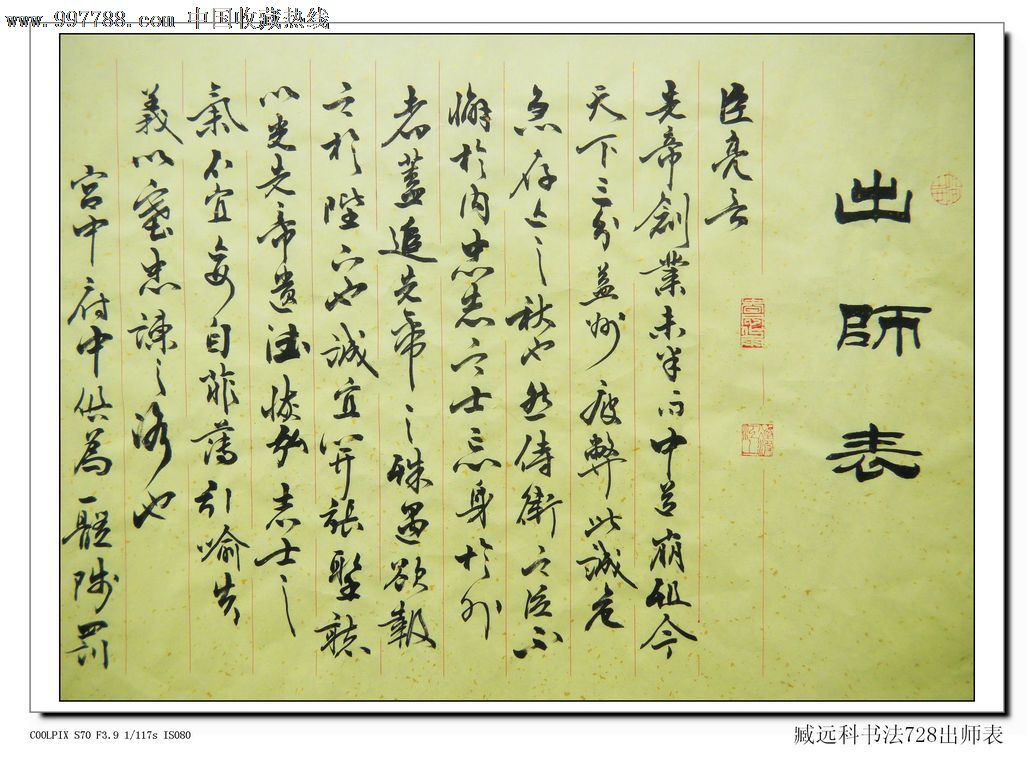 www.997788.com 中国收藏热线
出師表
臣亮言
先帝創業未半而中道崩殂今
天下三分益州疲弊此誠危
急存亡之秋也然侍衛之臣不
懈於內忠志之士忘身於外
者蓋追先帝之殊遇欲報
之於陛下也誠宜開張聖聽
以光先帝遺德恢弘志士之
氣不宜妄自菲薄引喻失
義以塞忠諫之路也
宮中府中俱為一體陟罰
COOLPIX S70 F3.9 1/117s ISO80
臧远科书法728出师表